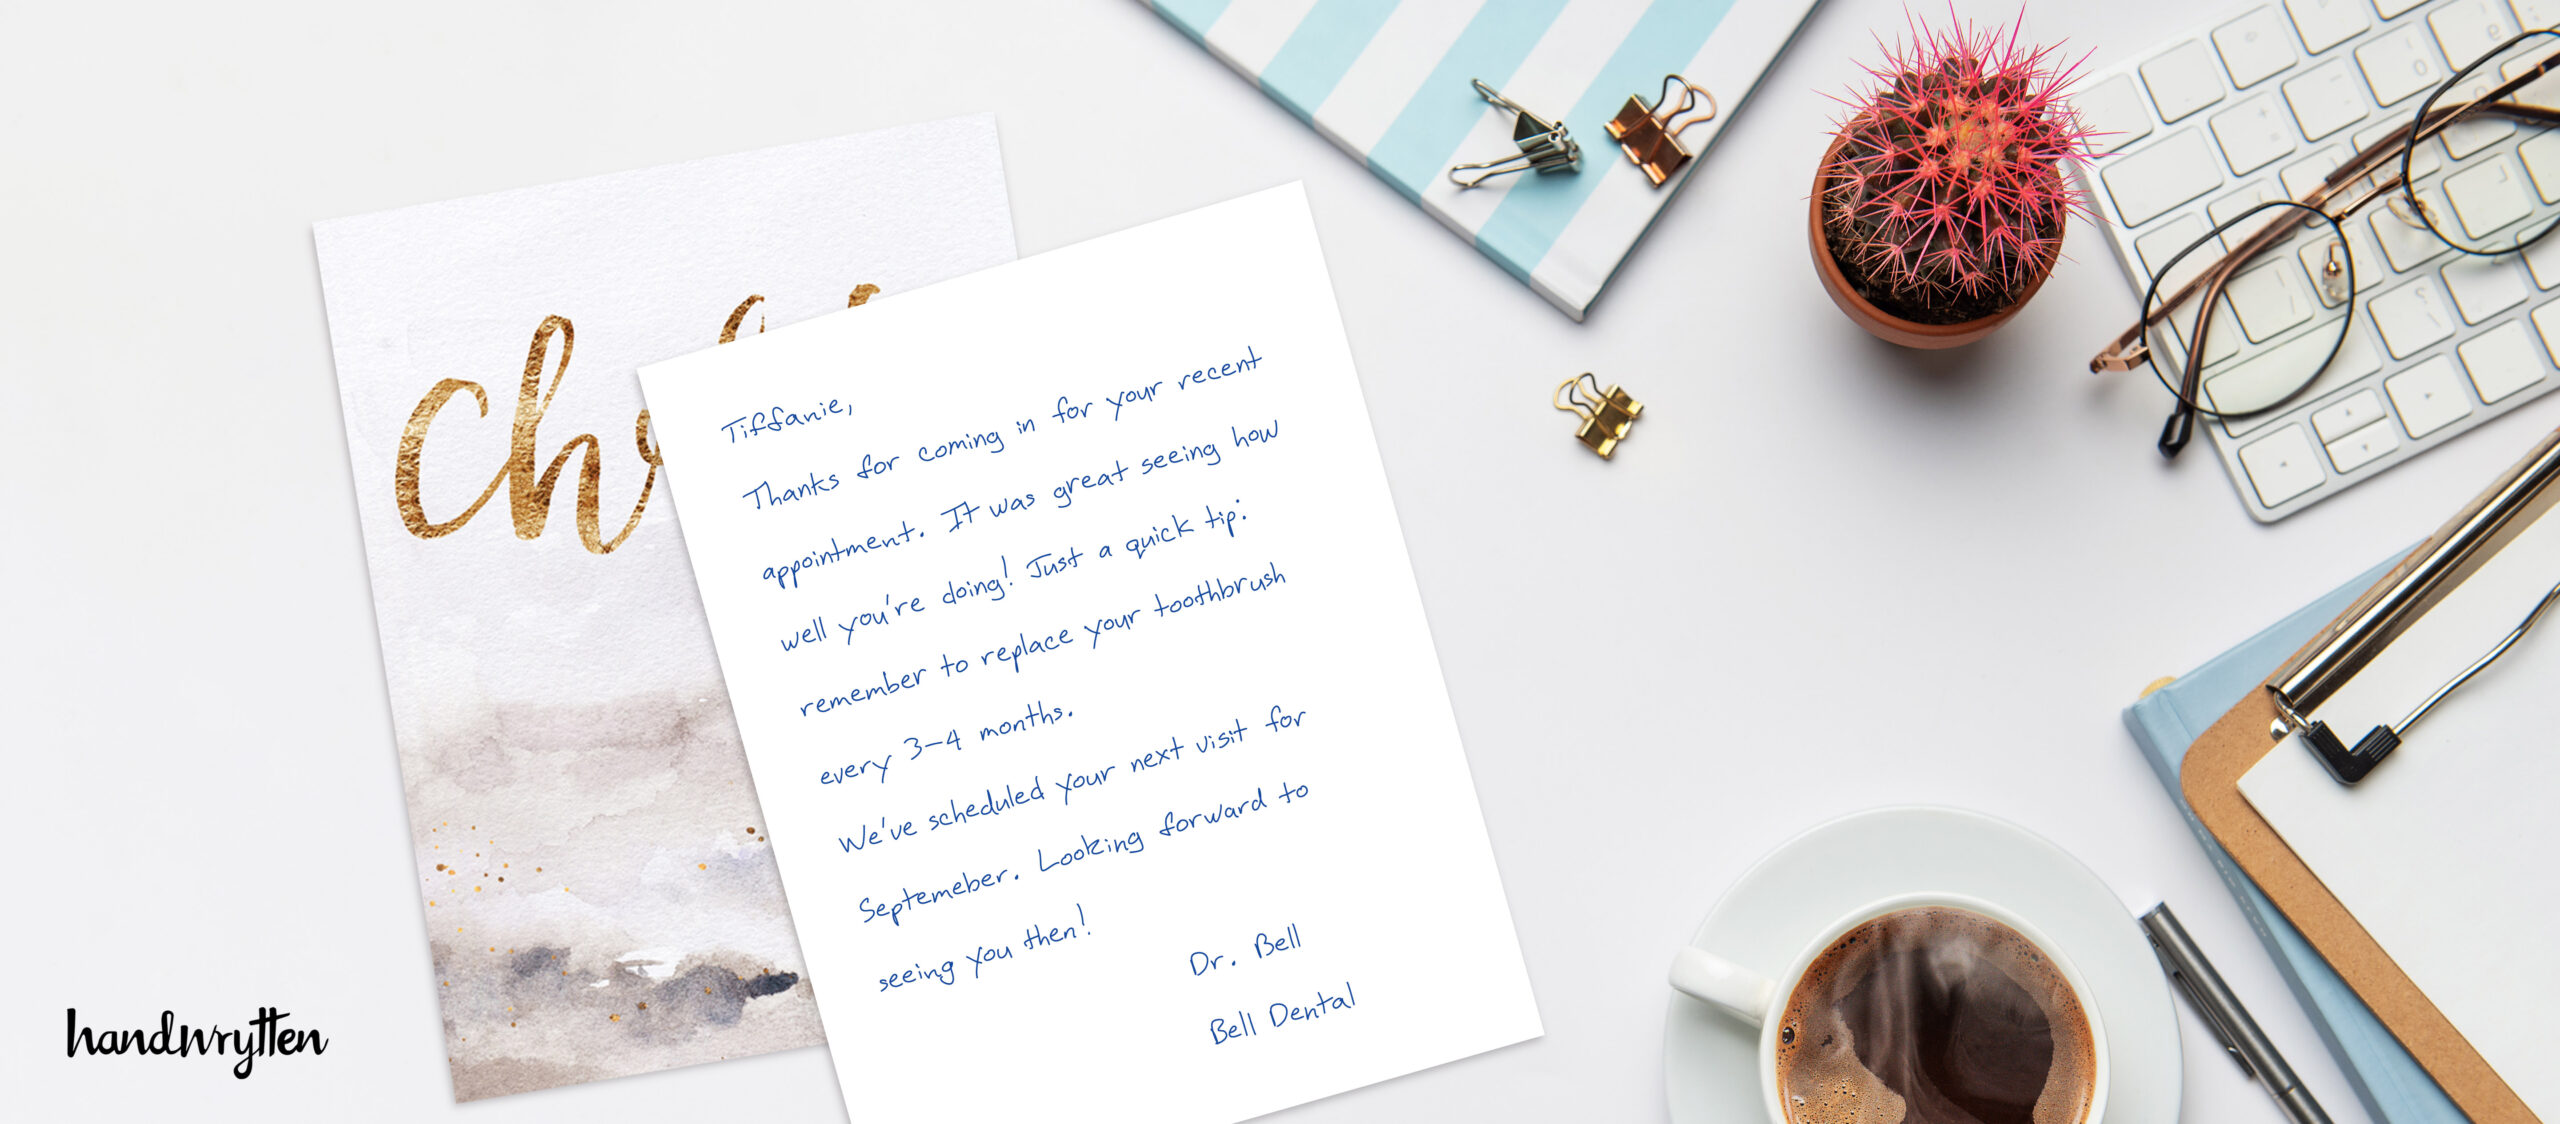 Tiffanie,
Thanks for coming in for your recent
appointment. It was great seeing how
well you're doing! Just a quick tip:
remember to replace your toothbrush
every 3-4 months.
We've scheduled your next visit for
Septemeber. Looking forward to
seeing you then!
Dr. Bell
Bell Dental
handwrytten